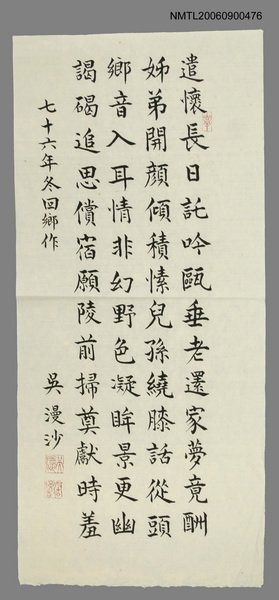 NMTL20060900476
遣懷長日託吟甌垂老還家夢竟酬
姊弟開顏傾積愫兒孫繞膝話從頭
鄉音入耳情非幻野色凝眸景更幽
謁碣追思償宿願陵前掃奠獻時羞
七十六年冬回鄉作
吳漫沙